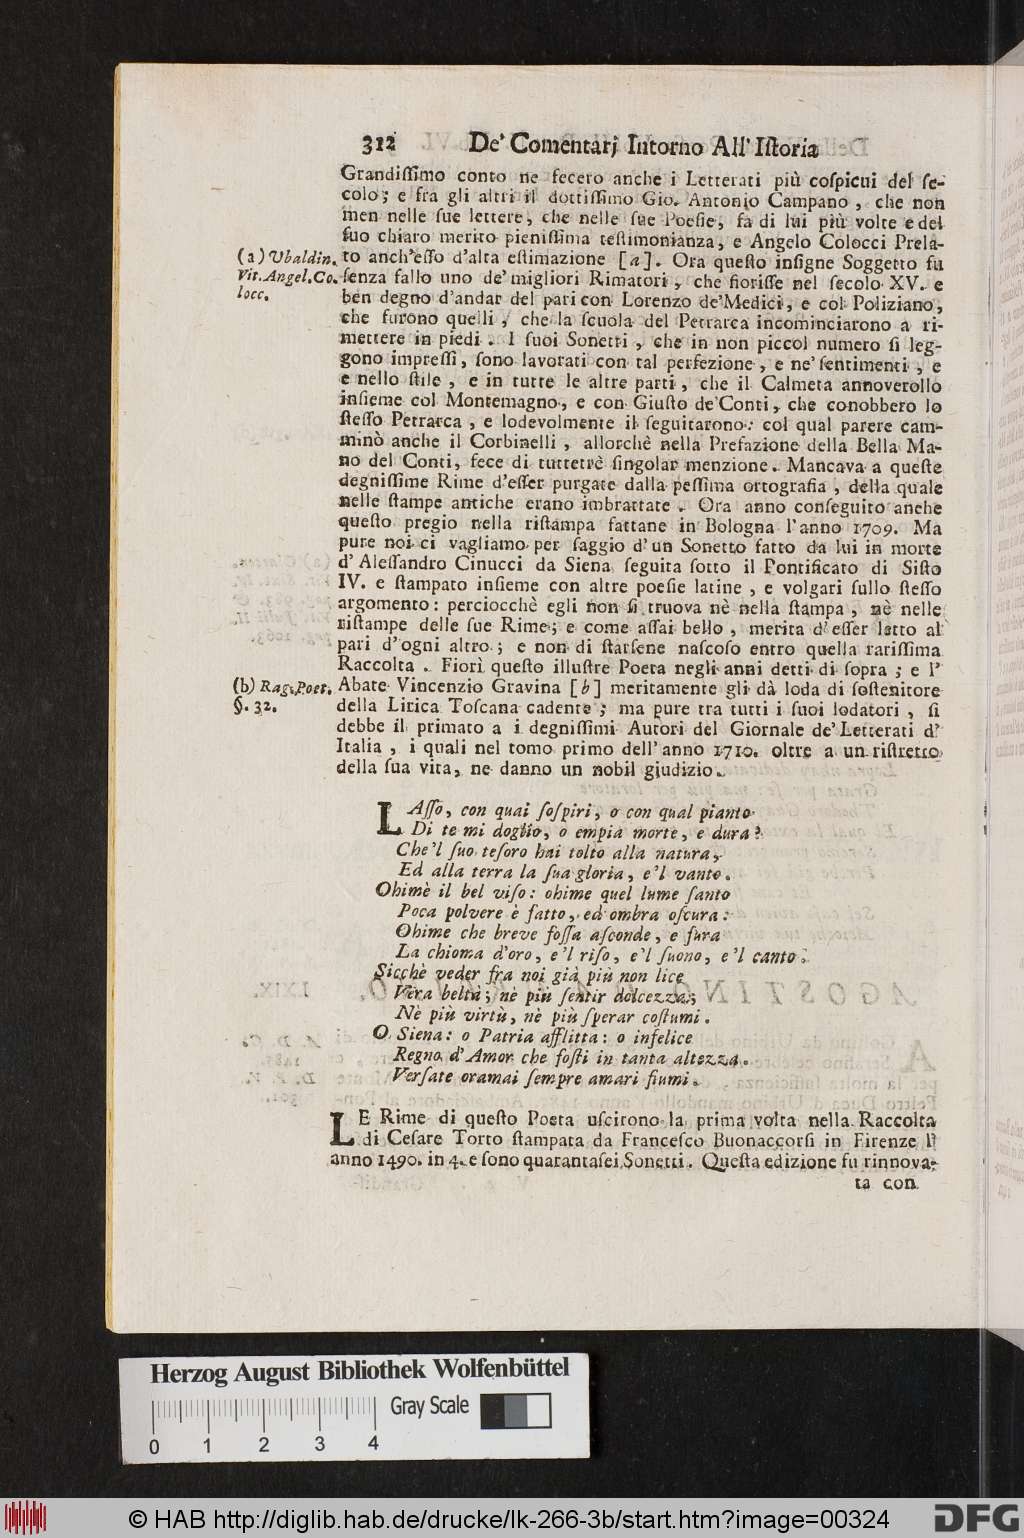 312 De' Comentarj Intorno All' Iſtoria
Grandiſſimo conto ne fecero anche i Letterati più coſpicui del ſe-
colo; e fra gli altri il dottiſſimo Gio. Antonio Campano, che non
men nelle ſue lettere, che nelle ſue Poeſie, fa di lui più volte e del
ſuo chiaro merito pieniſſima teſtimonianza, e Angelo Colocci Prela-
(a) Vbaldin. to anch'eſſo d'alta eſtimazione [a]. Ora queſto inſigne Soggetto fu
Vit. Angel. Co. ſenza fallo uno de' migliori Rimatori, che fioriſſe nel ſecolo XV. e
locc. ben degno d'andar del pari con Lorenzo de'Medici, e col Poliziano,
che furono quelli, che la ſcuola del Petrarca incominciarono a ri-
mettere in piedi. I ſuoi Sonetti, che in non piccol numero ſi leg-
gono impreſſi, ſono lavorati con tal perfezione, e ne' ſentimenti, e
e nello ſtile, e in tutte le altre parti, che il Calmeta annoverollo
inſieme col Montemagno, e con Giuſto de'Conti, che conobbero lo
ſteſſo Petrarca, e lodevolmente il ſeguitarono: col qual parere cam-
minò anche il Corbinelli, allorchè nella Prefazione della Bella Ma-
no del Conti, fece di tuttetrè ſingolar menzione. Mancava a queſte
degniſſime Rime d'eſſer purgate dalla peſſima ortografia, della quale
nelle ſtampe antiche erano imbrattate. Ora anno conſeguito anche
queſto pregio nella riſtampa fattane in Bologna l'anno 1709. Ma
pure noi ci vagliamo per ſaggio d'un Sonetto fatto da lui in morte
d'Aleſſandro Cinucci da Siena ſeguita ſotto il Pontificato di Siſto
IV. e ſtampato inſieme con altre poeſie latine, e volgari ſullo ſteſſo
argomento: perciocchè egli non ſi truova nè nella ſtampa, nè nelle
riſtampe delle ſue Rime; e come aſſai bello, merita d'eſſer letto al
pari d'ogni altro; e non di ſtarſene naſcoſo entro quella rariſſima
Raccolta. Fiorì queſto illuſtre Poeta negli anni detti di ſopra; e l'
(b) Rag. Poet. Abate Vincenzio Gravina [b] meritamente gli dà loda di ſoſtenitore
§. 32. della Lirica Toſcana cadente; ma pure tra tutti i ſuoi lodatori, ſi
debbe il primato a i degniſſimi Autori del Giornale de'Letterati d'
Italia, i quali nel tomo primo dell'anno 1710. oltre a un riſtretto
della ſua vita, ne danno un nobil giudizio.
LAſſo, con quai ſoſpiri, o con qual pianto
Di te mi doglio, o empia morte, e dura?
Che'l ſuo teſoro hai tolto alla natura,
Ed alla terra la ſua gloria, e'l vanto.
Ohimè il bel viſo: ohime quel lume ſanto
Poca polvere è fatto, ed ombra oſcura:
Ohime che breve foſſa aſconde, e fura
La chioma d'oro, e'l riſo, e'l ſuono, e'l canto.
Sicchè veder fra noi già più non lice
Vera beltà; nè più ſentir dolcezza;
Nè più virtù, nè più ſperar coſtumi.
O Siena: o Patria afflitta: o infelice
Regno d'Amor che foſti in tanta altezza.
Verſate oramai ſempre amari fiumi.
LE Rime di queſto Poeta uſcirono la prima volta nella Raccolta
di Ceſare Torto ſtampata da Franceſco Buonaccorſi in Firenze l'
anno 1490. in 4. e ſono quarantaſei Sonetti. Queſta edizione fu rinnova-
ta con
Herzog August Bibliothek Wolfenbüttel
Gray Scale
0 1 2 3 4
© HAB http://diglib.hab.de/drucke/lk-266-3b/start.htm?image=00324
DFG